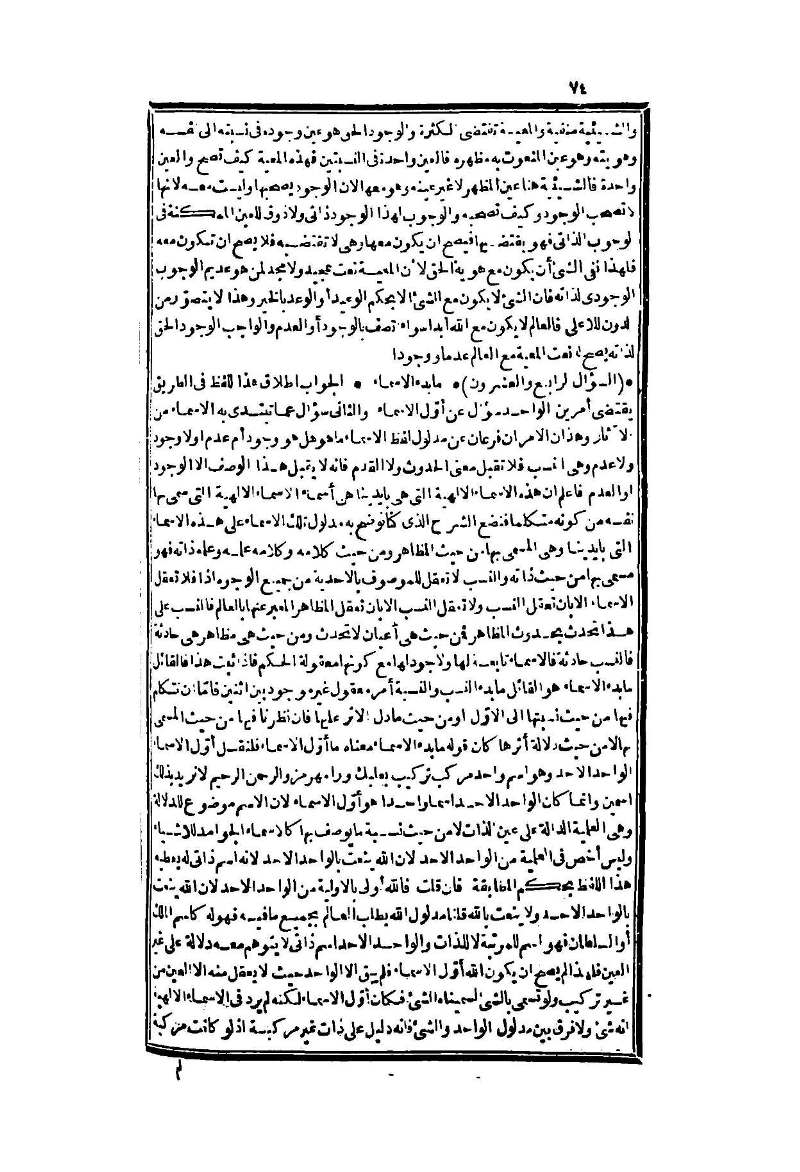 ٧٤
والشيئية منفية والمعية تقتضى الكثرة والوجود الحق هو عين وجوده فى نسبته الى نفسه
وهويته وهو عين المنعوت به مظهره فالعين واحدة فى النسبتين فهذه المعية كيف تصح والعين
واحدة فالشيئية هنا عين المظهر لا غير عينه وهو معها لان الوجود يصحبها وليست معه لانها
لا تصحب الوجود وكيف تصحبه والوجوب لهذا الوجود ذاتى ولا ذوق للعين الممكنة فى
لوجوب الذاتى فهو يقتضيها فيصح ان يكون معها وهى لا تقتضيه فلا يصح ان تكون معه
فلهذا نفى الشئ أن يكون مع هوية الحق لأن المعية نعت تمجيد ولا مجد لمن هو عديم الوجوب
الوجودى لذاته فان الشئ لا يكون مع الشئ الا بحكم الوعيد أو الوعد بالخير وهذا لا يتصور من
لدون للاعلى فالعالم لا يكون مع الله أبدا سواء اتصف بالوجود أو العدم والواجب الوجود الحق
لذاته يصح له نعت المعية مع العالم عدما ووجودا
• (السؤال الرابع والعشرون) • ما بدء الاسماء • الجواب اطلاق هذا اللفظ فى الطريق
يقتضى أمرين الواحد سؤال عن أول الاسماء والثانى سؤال عما تبتدى به الاسماء من
الآثار وهذان الامران فرعان عن مدلول لفظ الاسماء ما هو هل هو وجود أم عدم او لا وجود
ولا عدم وهى النسب فلا تقبل معنى الحدوث ولا القدم فانه لا يقبل هذا الوصف الا الوجود
او العدم فاعلم ان هذه الاسماء الالهية التى هى بايدينا هى أسماء الاسماء الالهية التى سمى بها
نفسه من كونه متكلما فنضع الشرح الذى كنا نوضح به مدلول تلك الاسماء على هذه الاسماء
التى بايدينا وهى المسمى بها من حيث المظاهر ومن حيث كلامه وكلامه علمه وعلمه ذاته فهو
مسمى بها من حيث ذاته والنسب لا تعقل للموصوف بالاحدية من جميع الوجوه اذا فلا تعقل
الاسماء الا بان تعقل النسب ولا تعقل النسب الا بان تعقل المظاهر المعبر عنها بالعالم فالنسب على
هذا تحدث بحدوث المظاهر فمن حيث هى أعيان لا تحدث ومن حيث هى مظاهر هى حادثة
فالنسب حادثة فالاسماء تابعة لها ولا وجود لها مع كونها معقولة الحكم فاذا ثبت هذا فالقائل
ما بدء الاسماء هو القائل ما بدء النسب والنسبة أمر معقول غير موجود بين اثنين فاما ان نتكلم
فيها من حيث نسبتها الى الاول او من حيث ما دل الاثر عليها فان نظرنا فيها من حيث المسمى
بها لا من حيث دلالة أثرها كان قوله ما بدء الاسماء معناه ما أول الاسماء فلنقل أول الاسماء
الواحد الاحد وهو اسم واحد مركب تركيب بعلبك ورامهرمز والرحمن الرحيم لا نريد بذلك
اسمين وانما كان الواحد الاحد اسما واحدا هو أول الاسماء لان الاسم موضوع للدلالة
وهى العلمية الدالة على عين الذات لا من حيث نسبة ما يوصف بها كالاسماء الجوامد للاشياء
وليس أخص فى العلمية من الواحد الاحد لان الله ينعت بالواحد الاحد لانه اسم ذاتى له يعطيه
هذا اللفظ بحكم المطابقة فان قلت فالله أولى بالاولية من الواحد الاحد لان الله ينعت
بالواحد الاحد ولا ينعت بالله قلنا مدلول الله يطلب العالم بجميع ما فيه فهو له كاسم الملك
أو السلطان فهو اسم للمرتبة لا للذات والواحد الاحد اسم ذاتى لا يتوهم معه دلالة على غير
العين فلهذا لم يصح ان يكون الله أول الاسماء فلم يبق الا الواحد حيث لا يعقل منه الا العين من
غير تركيب ولو تسمى بالشئ لسميناه الشئ فكان أول الاسماء لكنه لم يرد فى الاسماء الالهية
انه شئ ولا فرق بين مدلول الواحد والشئ فانه دليل على ذات غير مركبة اذ لو كانت مركبة